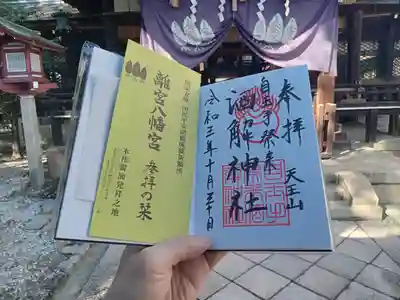 離宮八幡宮
参拝の栞
本邦製油発祥之地
奉拝
天王山
自玉手祭来
酒解神社
令和三年十月三十日